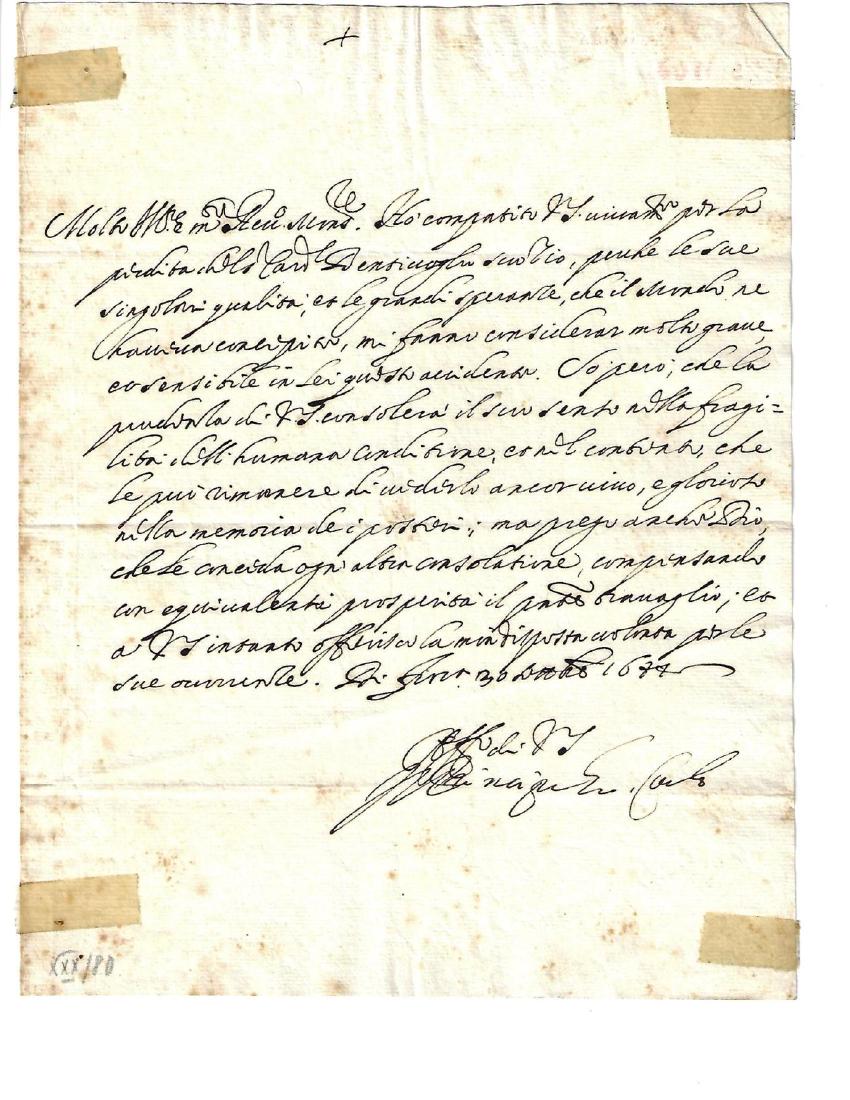 +
Molto Ill.re e m.to Rev.o Mons.re. Ho compatito V.S. vivam.te per la
perdita del S.r Card.l Bentivoglio suo Zio, perche le sue
singolari qualità, et le grandi speranze, che il Mondo ne
haveva concepito, mi fanno considerar molto grave,
e sensibile in Lei questo accidente. So però, che la
prudenza di V.S. consolerà il suo senso nella fragi=
lità dell'humana conditione, et nel contento, che
le può rimanere di vederlo ancor vivo, e glorioso
nella memoria de i posteri; ma prego anche Dio,
che Le conceda ogni altra consolatione, compensando
con equivalenti prosperità il pnte travaglio; et
a V.S. intanto offerisco la mia disposta volontà per le
sue occorrenze. Di 30 1644
Aff.mo di V.S.
Il Principe Carlo
XXX/80